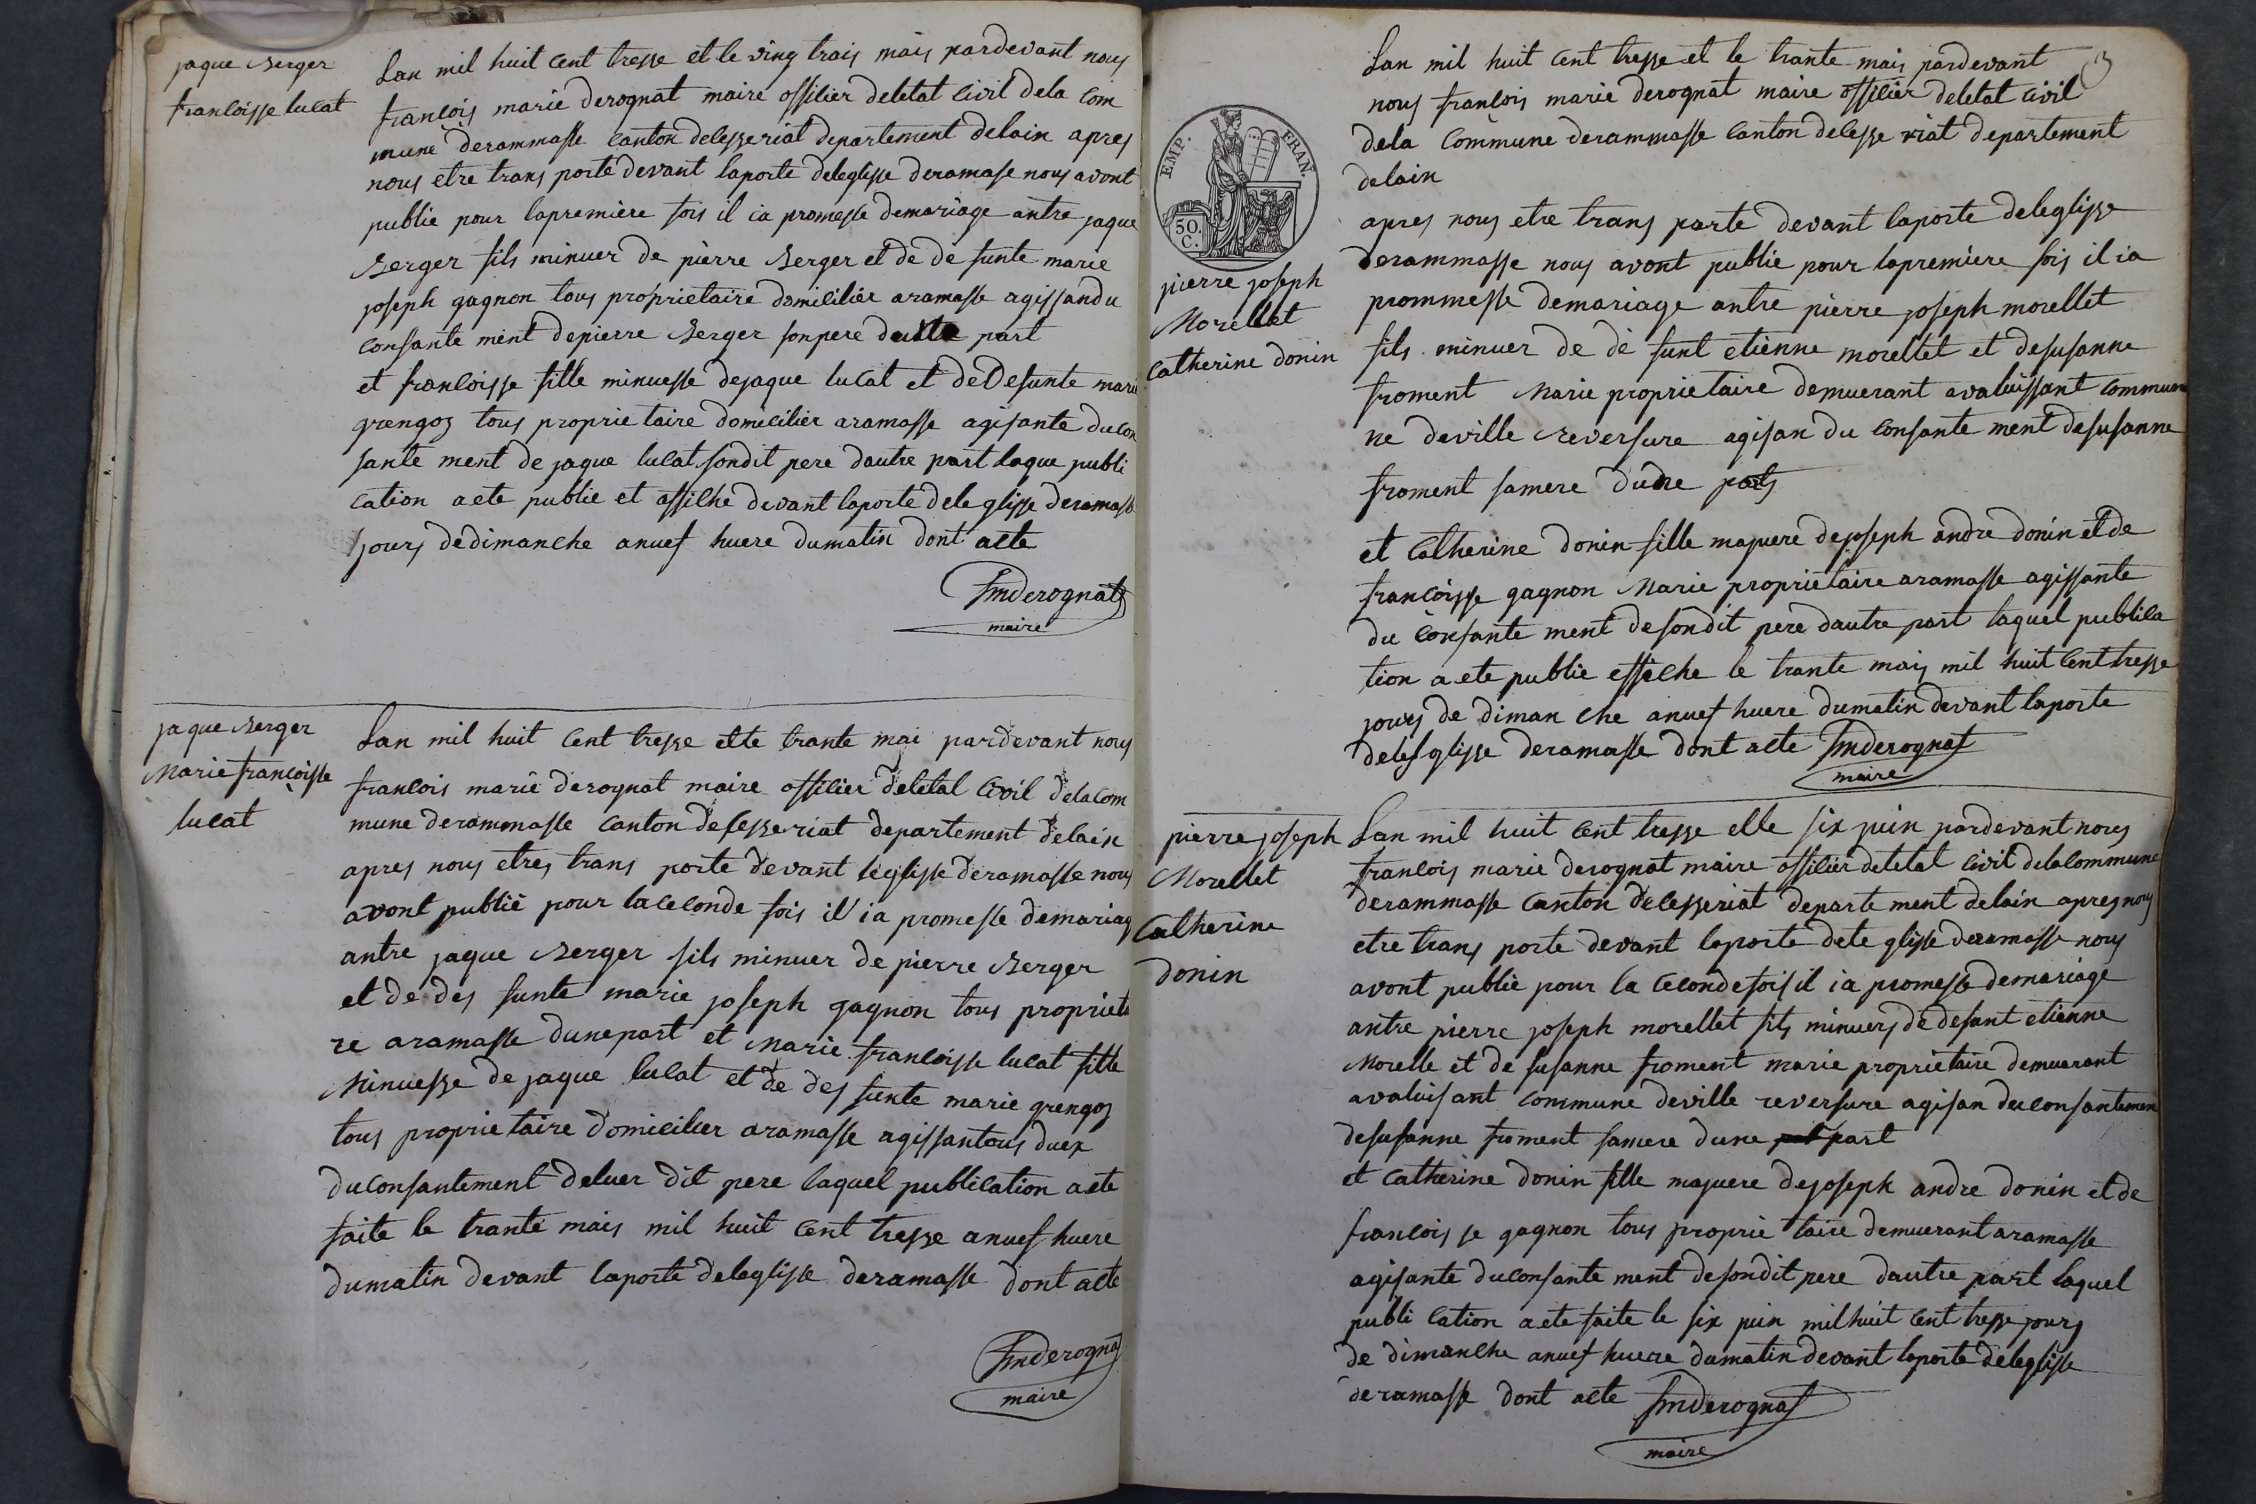 jaque Berger
francoisse lucat
Lan mil huit cent tresse et le ving trais mais pardevant nous
francois marie derognat maire officier deletat civil dela com
mune derammasse canton delesseriat departement delain apres
nous etre trans porte devant laporte deleglisse deramasse nous avont
publie pour lapremiere fois il ia promesse demariage antre jaque
Berger fils minuer de pierre Berger et de de funte marie
joseph gagnon tous proprietaire domicilier aramasse agissandu
consante ment depierre Berger son pere part
et francoisse fille minuesse dejaque lucat et de Defunte marie
grengoz tous proprie taire domicilier aramasse agisante du con
sante ment de jaque lucat sondit pere dautre part laque publi
cation aete publie et affilhe devant laporte dele glisse deramass
jours dedimanche anuef huere dumatin dont acte
fmderognat
maire
jaque Berger
Marie francoisse
lucat
Lan mil huit cent tresse ette trante mai pardevant nous
francois marie derognat maire officier deletal civil delacom
mune derammasse canton deCesseriat departement delain
apres nous etres trans porte devant leglisse deramasse nous
avont publie pour laceconde fois il ia promesse demariag
antre jaque Berger fils minuer de pierre Berger
et de des funte marie joseph gagnon tous propriet
re aramasse dunepart et Marie francoisse lucat fille
Minuesse de jaque lucat et de des funte marie grengoz
tous proprie taire domicilier aramasse agissantous duex
duconsantement deluer dit pere laquel publication aete
faite le trante mais mil huit cent tresse anuef huere
dumatin devant laporte deleglisse deramasse dont acte
fmderogna
maire
3
EMP. FRAN.
50.
C.
pierre joseph
Morellet
catherine donin
Lan mil huit cent tresse et le trante mais pardevant
nous francois marie derognat maire officier deletat civil
dela commune derammasse canton delesse riat departement
delain
apres nous etre trans porte devant laporte deleglisse
derammasse nous avont publie pour lapremiere fois il ia
prommesse demariage antre pierre joseph morellet
fils minuer de de funt etienne morellet et desusanne
froment Marie proprietaire demuerant avaluissant commun
ne deville reversure agisan du consante ment desusanne
froment samere dune part
et Catherine donin fille majuere dejoseph andre donin et de
francoisse gagnon Marie proprietaire aramasse agissante
du consante ment desondit pere dautre part laquel publica
tion aete publie effiche le trante mais mil huit cent tresse
jours de diman che anuef huere dumatin devant laporte
delesglisse deramasse dont acte fmderognat
maire
pierre joseph
Morellet
Catherine
donin
Lan mil huit cent tresse elle six juin pardevant nous
francois marie derognat maire officier deletat civil delacommune
derammasse canton delesseriat departe ment delain apres nous
etre trans porte devant laporte dele glisse deramasse nous
avont publie pour la cecondefois il ia promesse demariage
antre pierre joseph morellet fils minuers de defunt etienne
Morelle et de susanne froment marie proprietaire demuerant
avaluisant commune deville reversure agisan duconsantemen
desusanne froment samere dune part
et catherine donin fille majuere dejoseph andre donin et de
francois se gagnon tous proprie taire demuerant aramasse
agisante duconsante ment desondit pere dautre part laquel
publi cation aete faite le six juin mil huit cent tresse jours
de dimanche anuef huere dumatin devant laporte deleglisse
deramasse dont acte fmderognat
maire